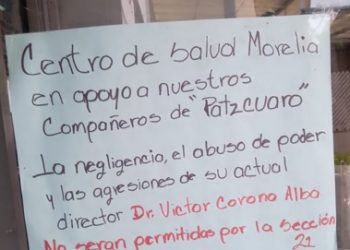 Centro de Salud Morelia
en apoyo a nuestros
Compañeros de "Patzcuaro"
La negligencia, el abuso de poder
y las agresiones de su actual
director Dr. Victor Corona Alba
No seran permitidas por la sección
21